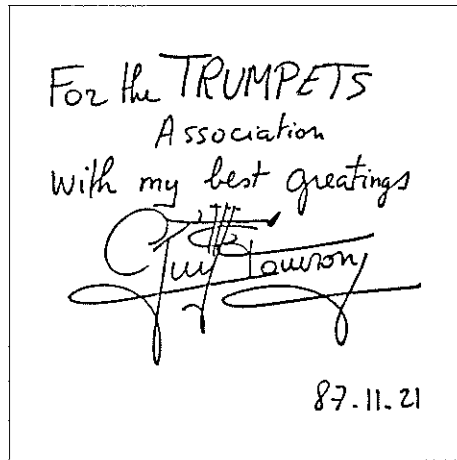 For the TRUMPETS
Association
with my best greatings
Guy Touvron
87.11.21